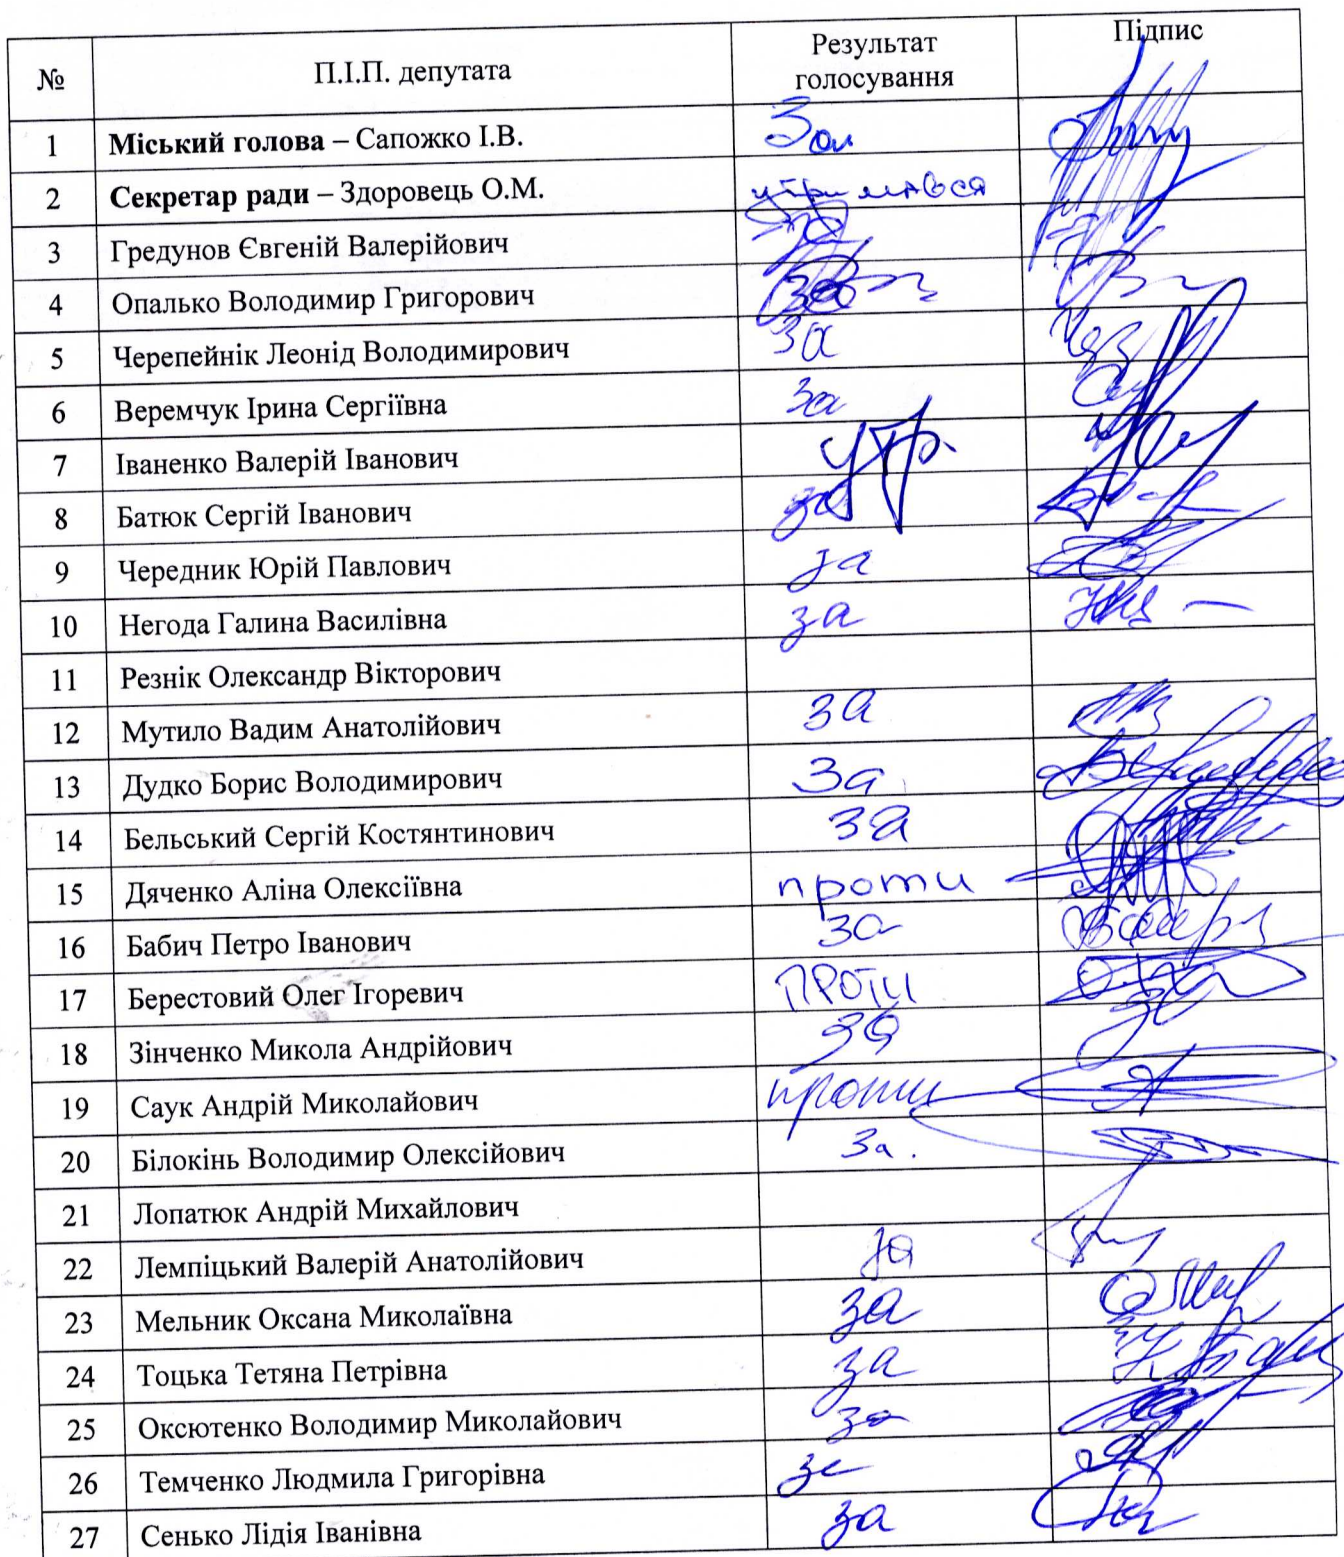 № П.І.П. депутата Результат голосування Підпис
1 Міський голова – Сапожко І.В. За
2 Секретар ради – Здоровець О.М. утримався
3 Гредунов Євгеній Валерійович
4 Опалько Володимир Григорович За
5 Черепейнік Леонід Володимирович За
6 Веремчук Ірина Сергіївна За
7 Іваненко Валерій Іванович утр.
8 Батюк Сергій Іванович за
9 Чередник Юрій Павлович за
10 Негода Галина Василівна за
11 Резнік Олександр Вікторович
12 Мутило Вадим Анатолійович за
13 Дудко Борис Володимирович За
14 Бельський Сергій Костянтинович за
15 Дяченко Аліна Олексіївна проти
16 Бабич Петро Іванович за
17 Берестовий Олег Ігоревич ПРОТИ
18 Зінченко Микола Андрійович за
19 Саук Андрій Миколайович проти
20 Білокінь Володимир Олексійович За.
21 Лопатюк Андрій Михайлович
22 Лемпіцький Валерій Анатолійович за
23 Мельник Оксана Миколаївна за
24 Тоцька Тетяна Петрівна за
25 Оксютенко Володимир Миколайович за
26 Темченко Людмила Григорівна за
27 Сенько Лідія Іванівна за